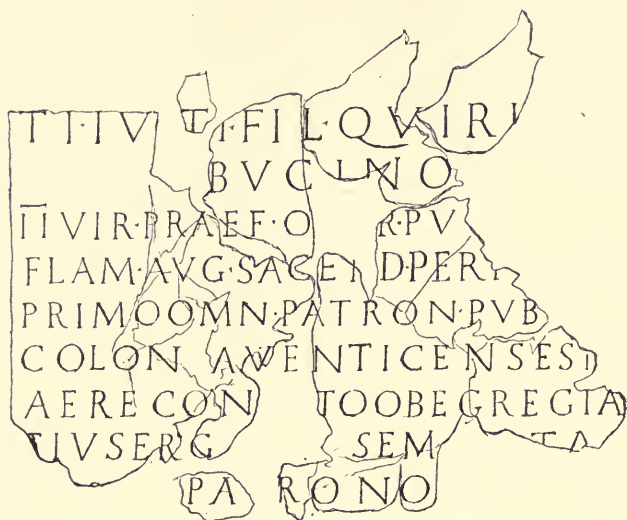 TI·IV TI·FIL·QVIRI
BVCINO
IIVIR·PRAEF·O R·PV
FLAM·AVG·SACE DPER
PRIMOOMN·PATRON·PVB
COLON AVENTICENSES
AERE CON TOOBEGREGIA
EIVSERG SEM TA
PA RONO